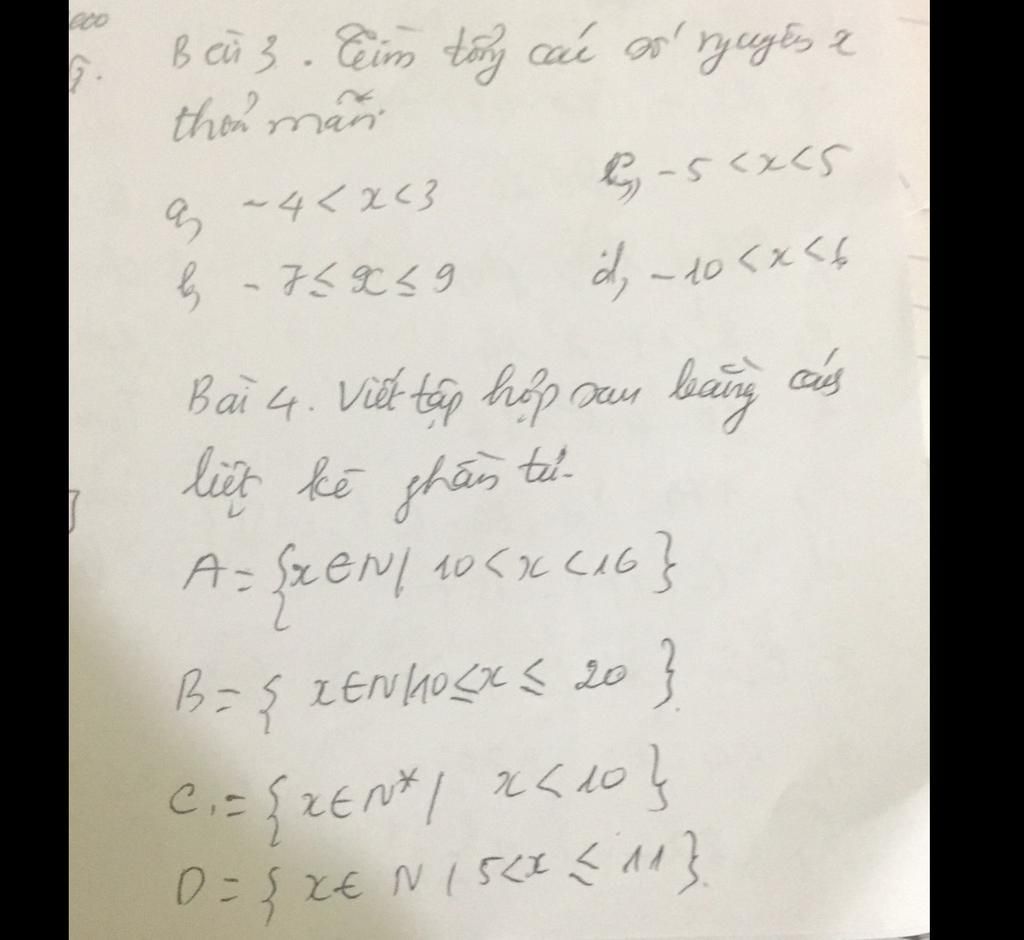 Bài 3. Tìm tổng các số nguyên x
thoả mãn
a, -4 < x < 3
c, -5 < x < 5
b, -7 ≤ x ≤ 9
d, -10 < x < 6
Bài 4. Viết tập hợp sau bằng cách
liệt kê phần tử.
A = {x ∈ N / 10 < x < 16}
B = { x ∈ N / 10 ≤ x ≤ 20 }.
C = { x ∈ N* / x < 10 }
D = { x ∈ N / 5 < x ≤ 11 }.